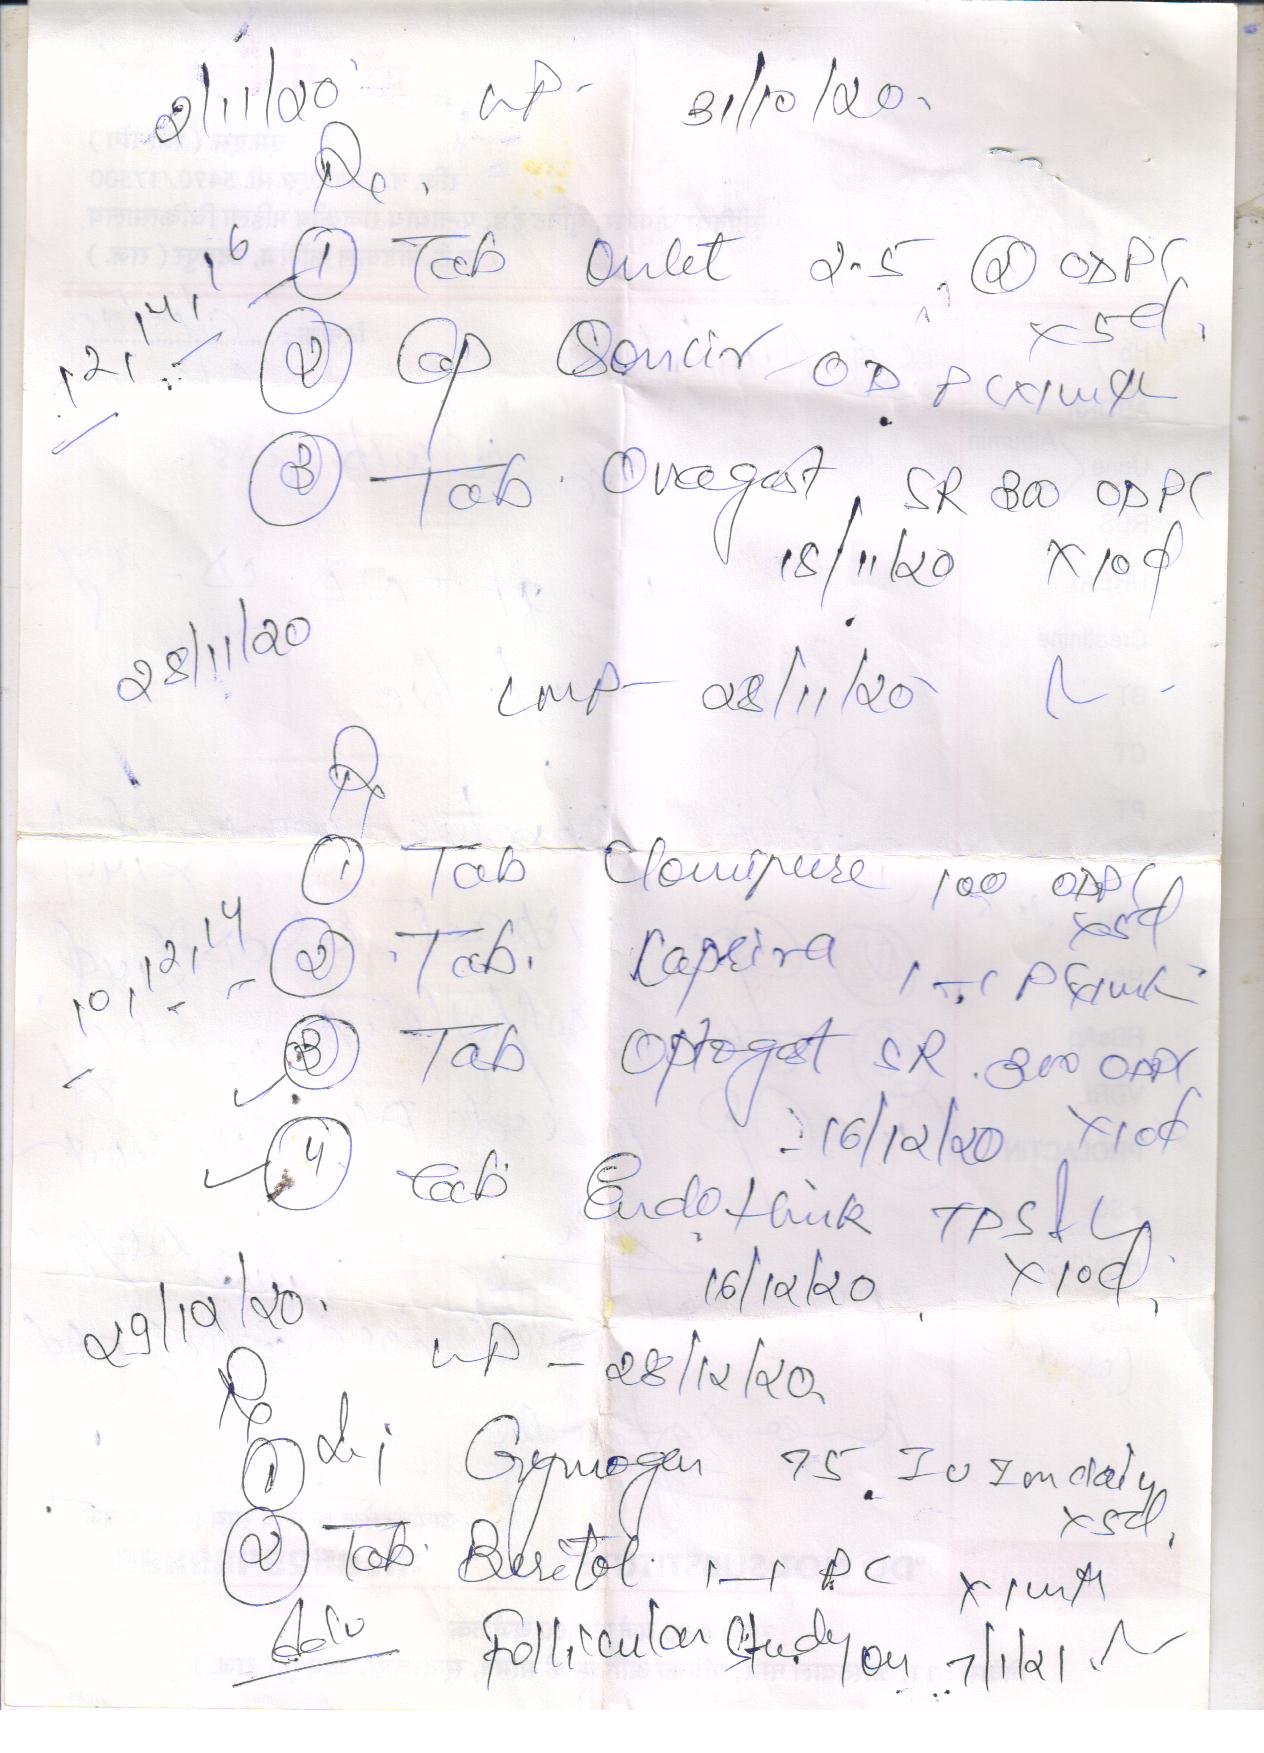 2/11/20 LMP - 31/10/20.
Rx.
① Tab Ovulet 2.5 ② OD PC
x 5d.
, 12, 14, 16
② Cap OD PC x 1 mth
③ Tab. Ovagest SR 300 OD PC
18/11/20 x 10d
28/11/20
LMP - 28/11/20
Rx
① Tab Clomipure 100 OD PC
x 5d
10, 12, 14
② Tab. 1-1 PC x 1 mth
③ Tab Optogest SR 300 OD PC
- 16/12/20 x 10d
④ Tab Endothink TDS
16/12/20 x 10d.
29/12/20.
LMP - 28/12/20
Rx
① Inj Gynogen 75 IU Im daily
x 5d.
② Tab. 1-1 PC x 1 mth
Adv Follicular Study on 7/1/21